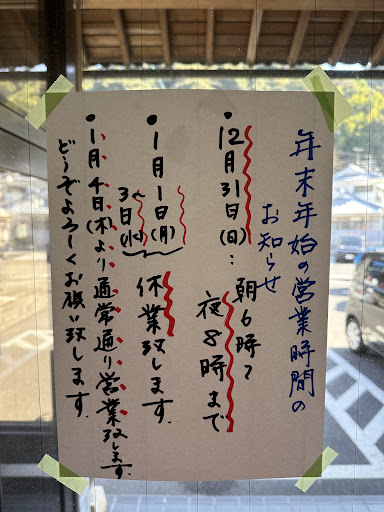 年末年始の営業時間の
お知らせ
●12月31日(日)…朝6時〜
夜8時まで
●1月1日(月)〜
3日(水)
休業致します.
●1月4日(木)より通常通り営業致します.
どうぞよろしくお願い致します.